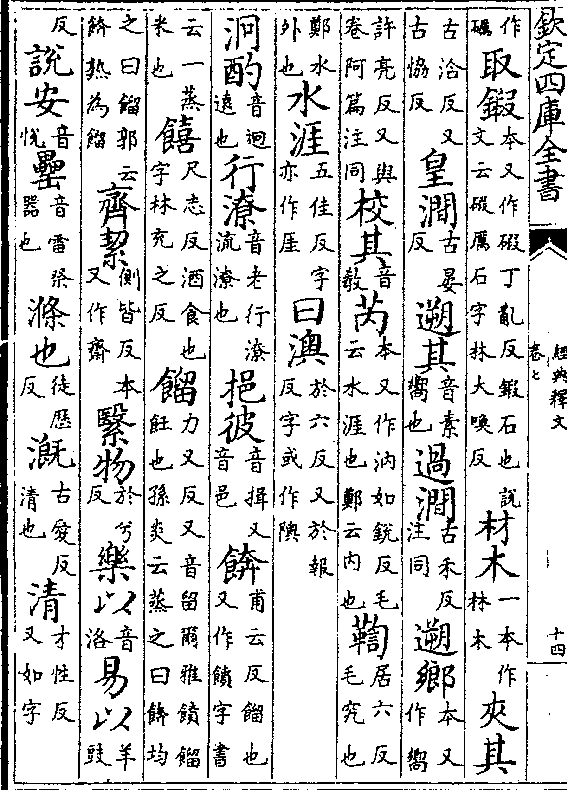 欽定四庫全書 經典釋文 卷七 十四
作碫 取鍜 本又作碫丁亂反鍜石也說文云碫厲石字林大喚反 材木 一本作林木 夾其
古洽反又古協反 皇澗 古晏反 遡其 音素嚮也 過澗 古禾反注同 遡鄉 本又作嚮
許亮反又與卷阿篇注同 校其 音教 芮 本又作汭如銳反毛云水涯也鄭云內也 鞫 居六反毛究也
鄭水外也 水涯 五佳反字亦作厓 曰澳 於六反又於報反字或作隩
泂酌 音迥遠也 行潦 音老行潦流潦也 挹彼 音揖又音邑 餴 甫云反餾也又作饙字書
云一蒸米也 饎 尺志反酒食也字林充之反 餾 力又反又音留爾雅饙餾飪也孫炎云蒸之曰餴均
之曰餾郭云餴熟為餾 齊絜 側皆反本又作齋 繄物 於兮反 樂以 音洛 易以 羊豉
反 說安 音悅 罍 音雷祭器也 滌也 徒歷反 溉 古愛反清也 清 才性反又如字